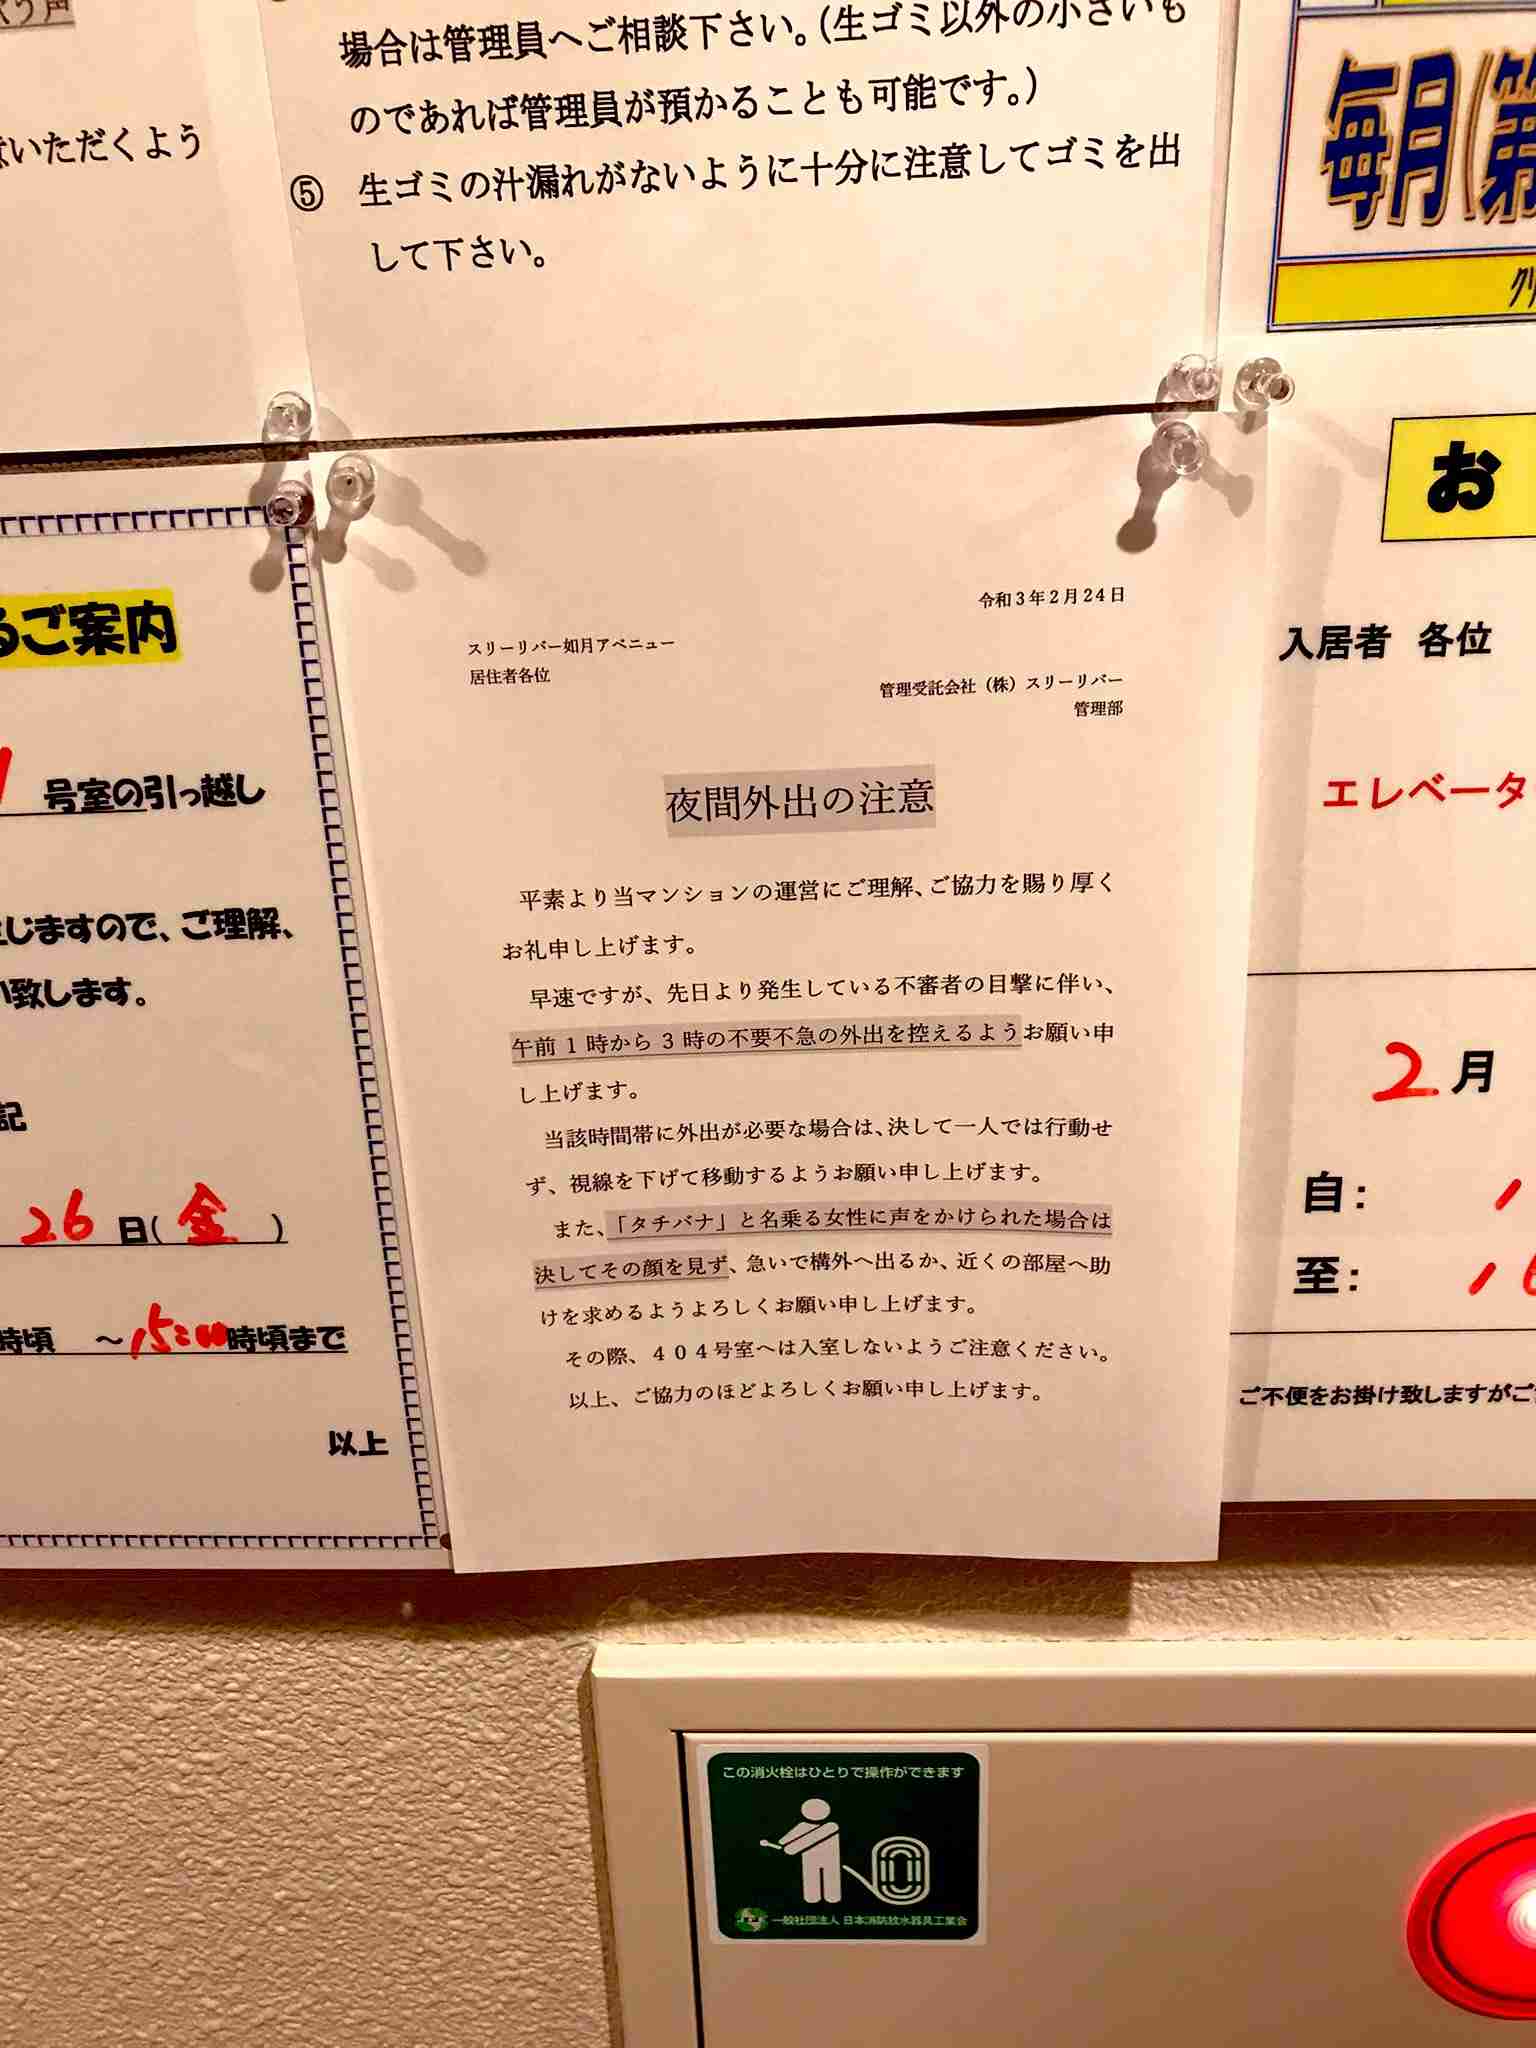 う声
意いただくよう
場合は管理員へご相談下さい。（生ゴミ以外の小さいも
のであれば管理員が預かることも可能です。）
⑤ 生ゴミの汁漏れがないように十分に注意してゴミを出
して下さい。
毎月(第
るご案内
号室の引っ越し
生じますので、ご理解、
い致します。
記
26日(金 )
時頃 ～15:00時頃まで
以上
令和3年2月24日
スリーリバー如月アベニュー
居住者各位
管理受託会社（株）スリーリバー
管理部
夜間外出の注意
平素より当マンションの運営にご理解、ご協力を賜り厚く
お礼申し上げます。
早速ですが、先日より発生している不審者の目撃に伴い、
午前1時から3時の不要不急の外出を控えるようお願い申
し上げます。
当該時間帯に外出が必要な場合は、決して一人では行動せ
ず、視線を下げて移動するようお願い申し上げます。
また、「タチバナ」と名乗る女性に声をかけられた場合は
決してその顔を見ず、急いで構外へ出るか、近くの部屋へ助
けを求めるようよろしくお願い申し上げます。
その際、404号室へは入室しないようご注意ください。
以上、ご協力のほどよろしくお願い申し上げます。
お
入居者 各位
エレベータ
2月
自：
至：
ご不便をお掛け致しますがご
この消火栓はひとりで操作ができます
一般社団法人 日本消防放水器具工業会